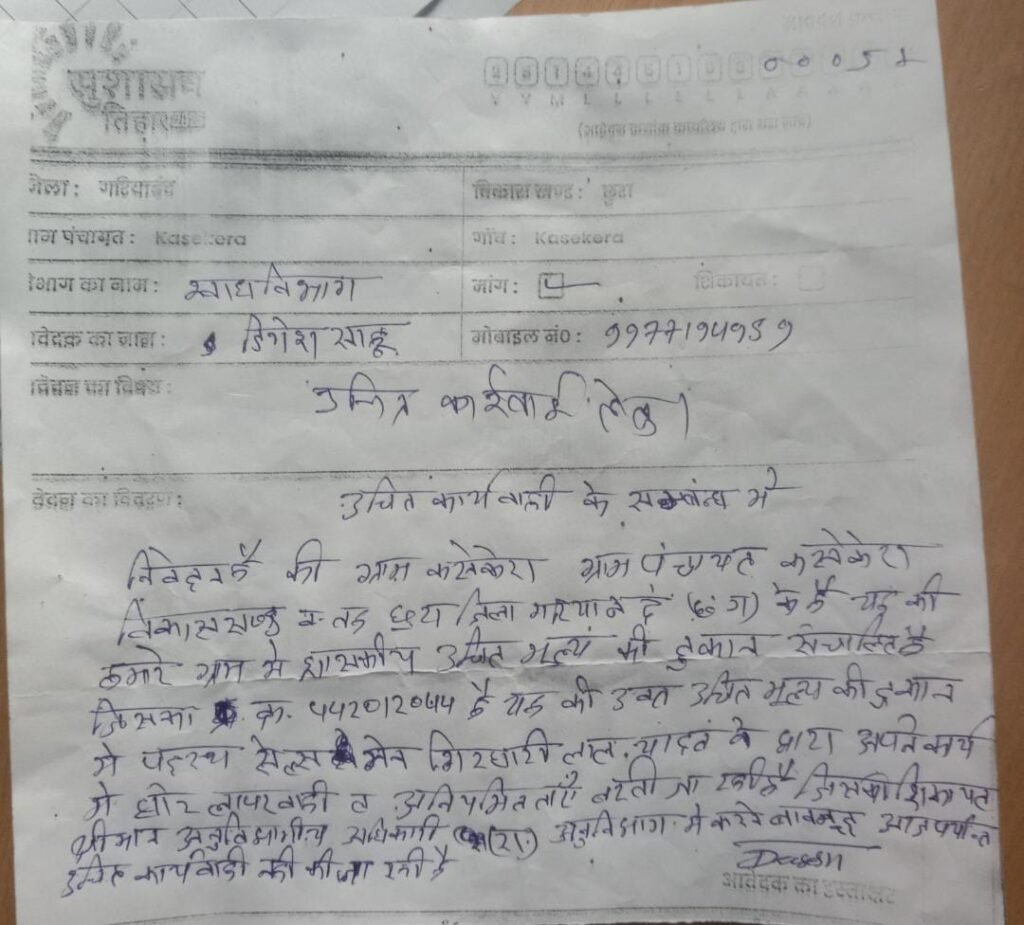 सुशासन
तिहार
0 0 0 5 1
Y Y M L L L L L L A
जिला: गरियाबंद
विकास खण्ड: छुरा
ग्राम पंचायत: Kasekera
गाँव: Kasekera
विभाग का नाम: खाद्य विभाग
मांग:
शिकायत:
आवेदक का नाम: डिगेश साहू
मोबाइल नं०:
आवेदन का विषय:
उचित कार्रवाई हेतु।
आवेदन का विवरण:
उचित कार्यवाही के सम्बंध में
निवेदन है की ग्राम कसेकेरा ग्राम पंचायत कसेकेरा
विकासखण्ड व तह छुरा जिला गरियाबंद (छ.ग) के है यह की
हमारे ग्राम में शासकीय उचित मूल्य की दुकान संचालित है
जिसका क्र. 442012044 है यह की उक्त उचित मूल्य की दुकान
में पदस्थ सेल्समेन गिरधारी लाल यादव के द्वारा अपने कार्य
में घोर लापरवाही व अनियमितताएँ बरती जा रही है जिसकी शिकायत
श्रीमान अनुविभागीय अधिकारी (रा.) अनुविभाग में करने बावजूद आज पर्यन्त
उचित कार्यवाही की जा रही है
आवेदक का हस्ताक्षर